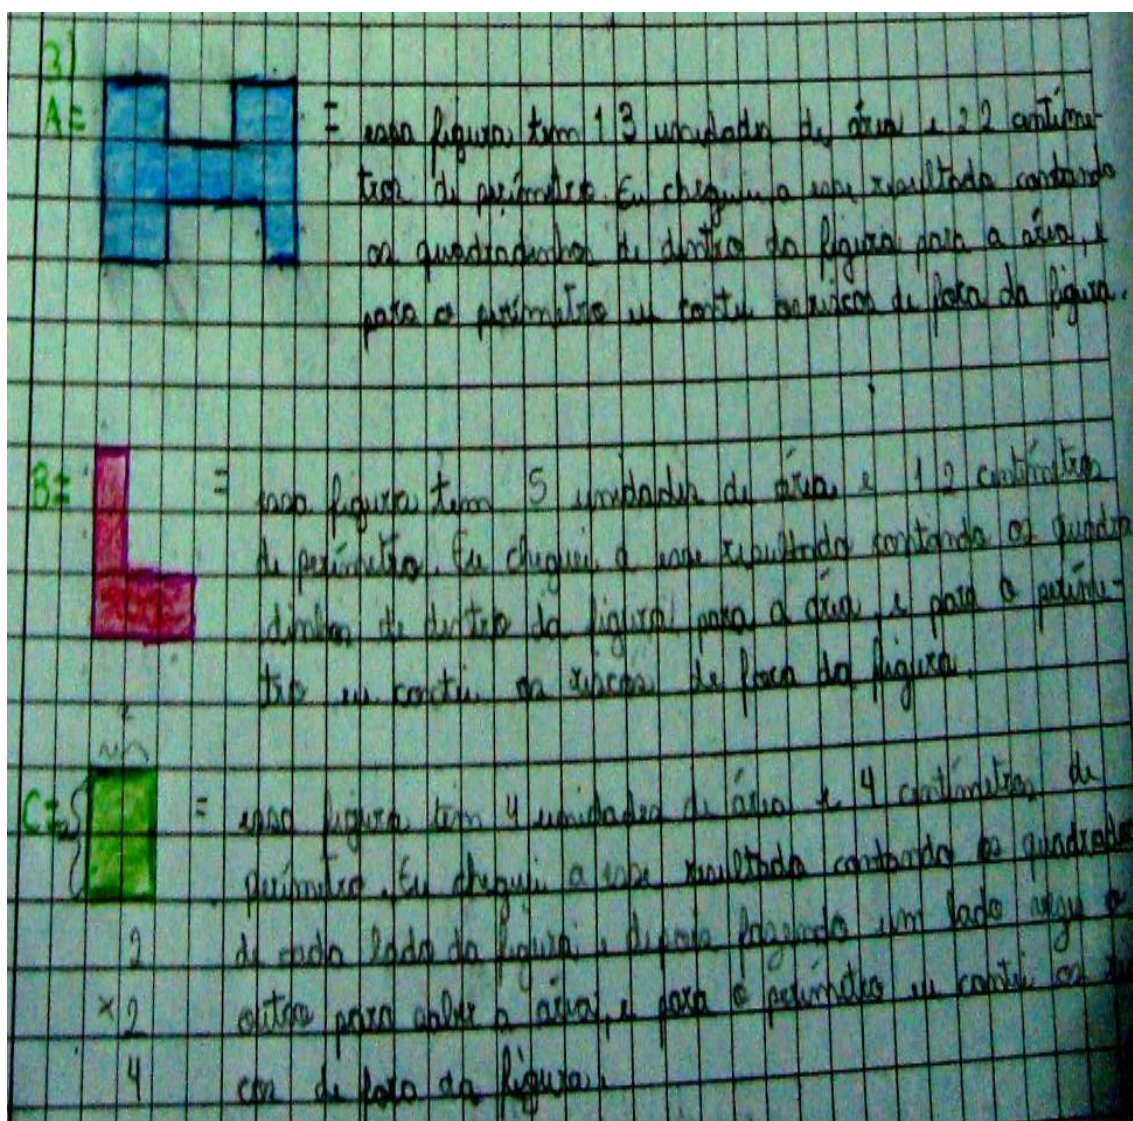 3)
A= = essa figura tem 13 unidades de área e 22 centíme-
tros de perímetro. Eu cheguei a esse resultado contando
os quadradinhos de dentro da figura para a área, e
para o perímetro eu contei os riscos de fora da figura.
B= = essa figura tem 5 unidades de área e 12 centímetros
de perímetro. Eu cheguei a esse resultado contando os quadra
dinhos de dentro da figura para a área, e para o períme-
tro eu contei os riscos de fora da figura.
C= = essa figura tem 4 unidades de área e 4 centímetros de
perímetro. Eu cheguei a esse resultado contando os quadrados
2 de cada lado da figura e depois fazendo um lado vezes o
×2 outro para saber a área, e para o perímetro eu contei os
4 cos de fora da figura.